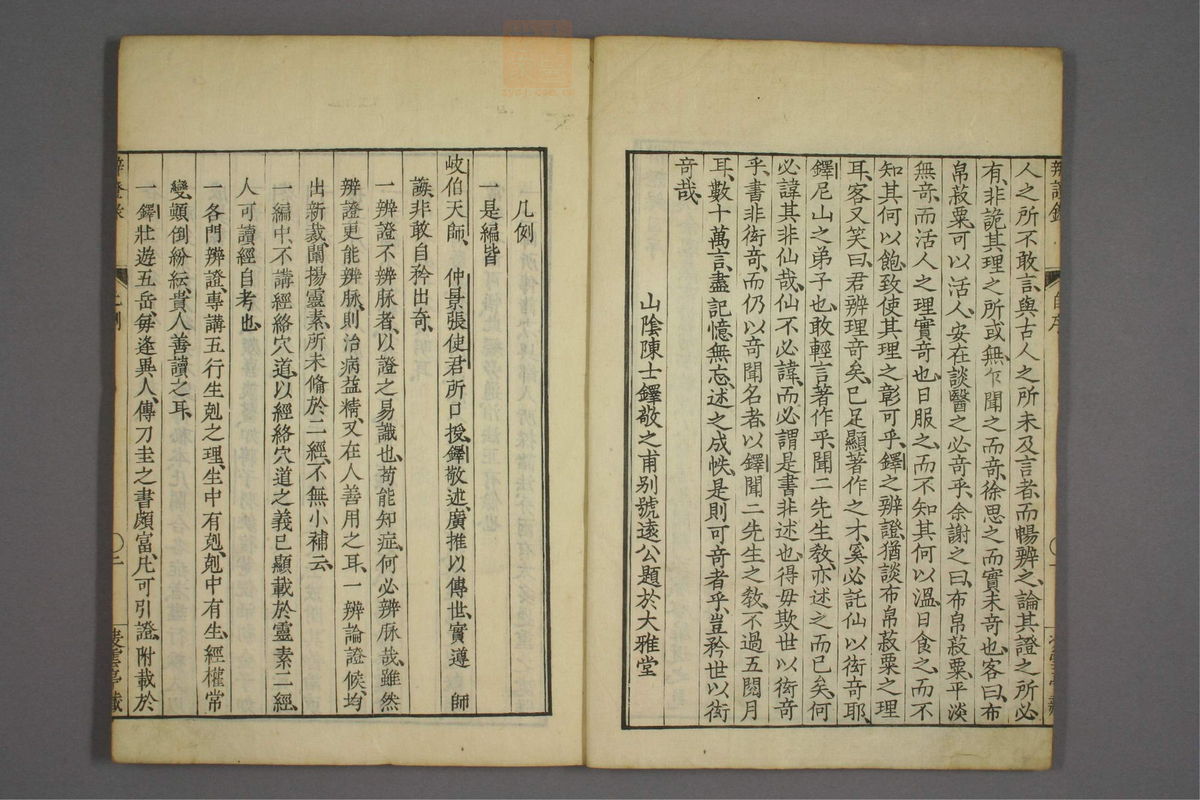 人之所不敢言與古人之所未及言者而暢辨之論其證之所必
有非詭其理之所或無乍聞之而竒徐思之而實未竒也客曰布
帛菽粟可以活人安在談醫之必竒乎余謝之曰布帛菽粟平淡
無竒而活人之理實竒也日服之而不知其何以溫日食之而不
知其何以飽致使其理之彰可乎鐸之辨證猶談布帛菽粟之理
耳客又笑曰君辨理竒矣已足顯著作之才奚必託仙以衒竒耶
鐸尼山之弟子也敢輕言著作乎聞二先生教亦述之而已矣何
必諱其非仙哉仙不必諱而必謂是書非述也得毋欺世以衒竒
乎書非衒竒而仍以竒聞名者以鐸聞二先生之教不過五閱月
耳數十萬言盡記憶無忘述之成帙是則可竒者乎豈矜世以衒
竒哉
山陰陳士鐸敬之甫别號遠公題於大雅堂
凡例
一是編皆
岐伯天師 仲景張使君所口授鐸敬述廣推以傳世實遵 師
誨非敢自矜出竒
一辨證不辨脉者以證之易識也苟能知症何必辨脉哉雖然
辨證更能辨脉則治病益精又在人善用之耳一辨論證候均
出新裁闡揚靈素所未備於二經不無小補云
一編中不講經絡穴道以經絡穴道之義已顯載於靈素二經
人可讀經自考也
一各門辨證專講五行生剋之理生中有剋剋中有生經權常
變顛倒紛紜貴人善讀之耳
一鐸壯遊五岳每逢異人傳刀圭之書頗富凡可引證附載於